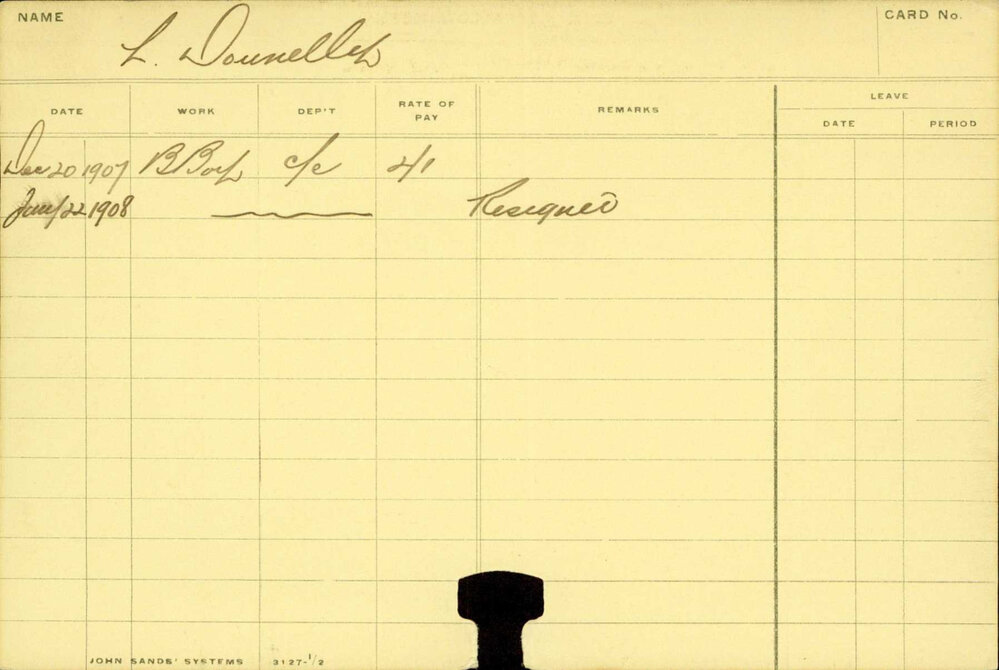 NAME
CARD No.
L. Donnelley
DATE WORK DEP'T RATE OF PAY REMARKS LEAVE
DATE PERIOD
Dec 20 1907 B Boy c/e 4/
22 1908 Resigned
JOHN SANDS' SYSTEMS 3127-1/2